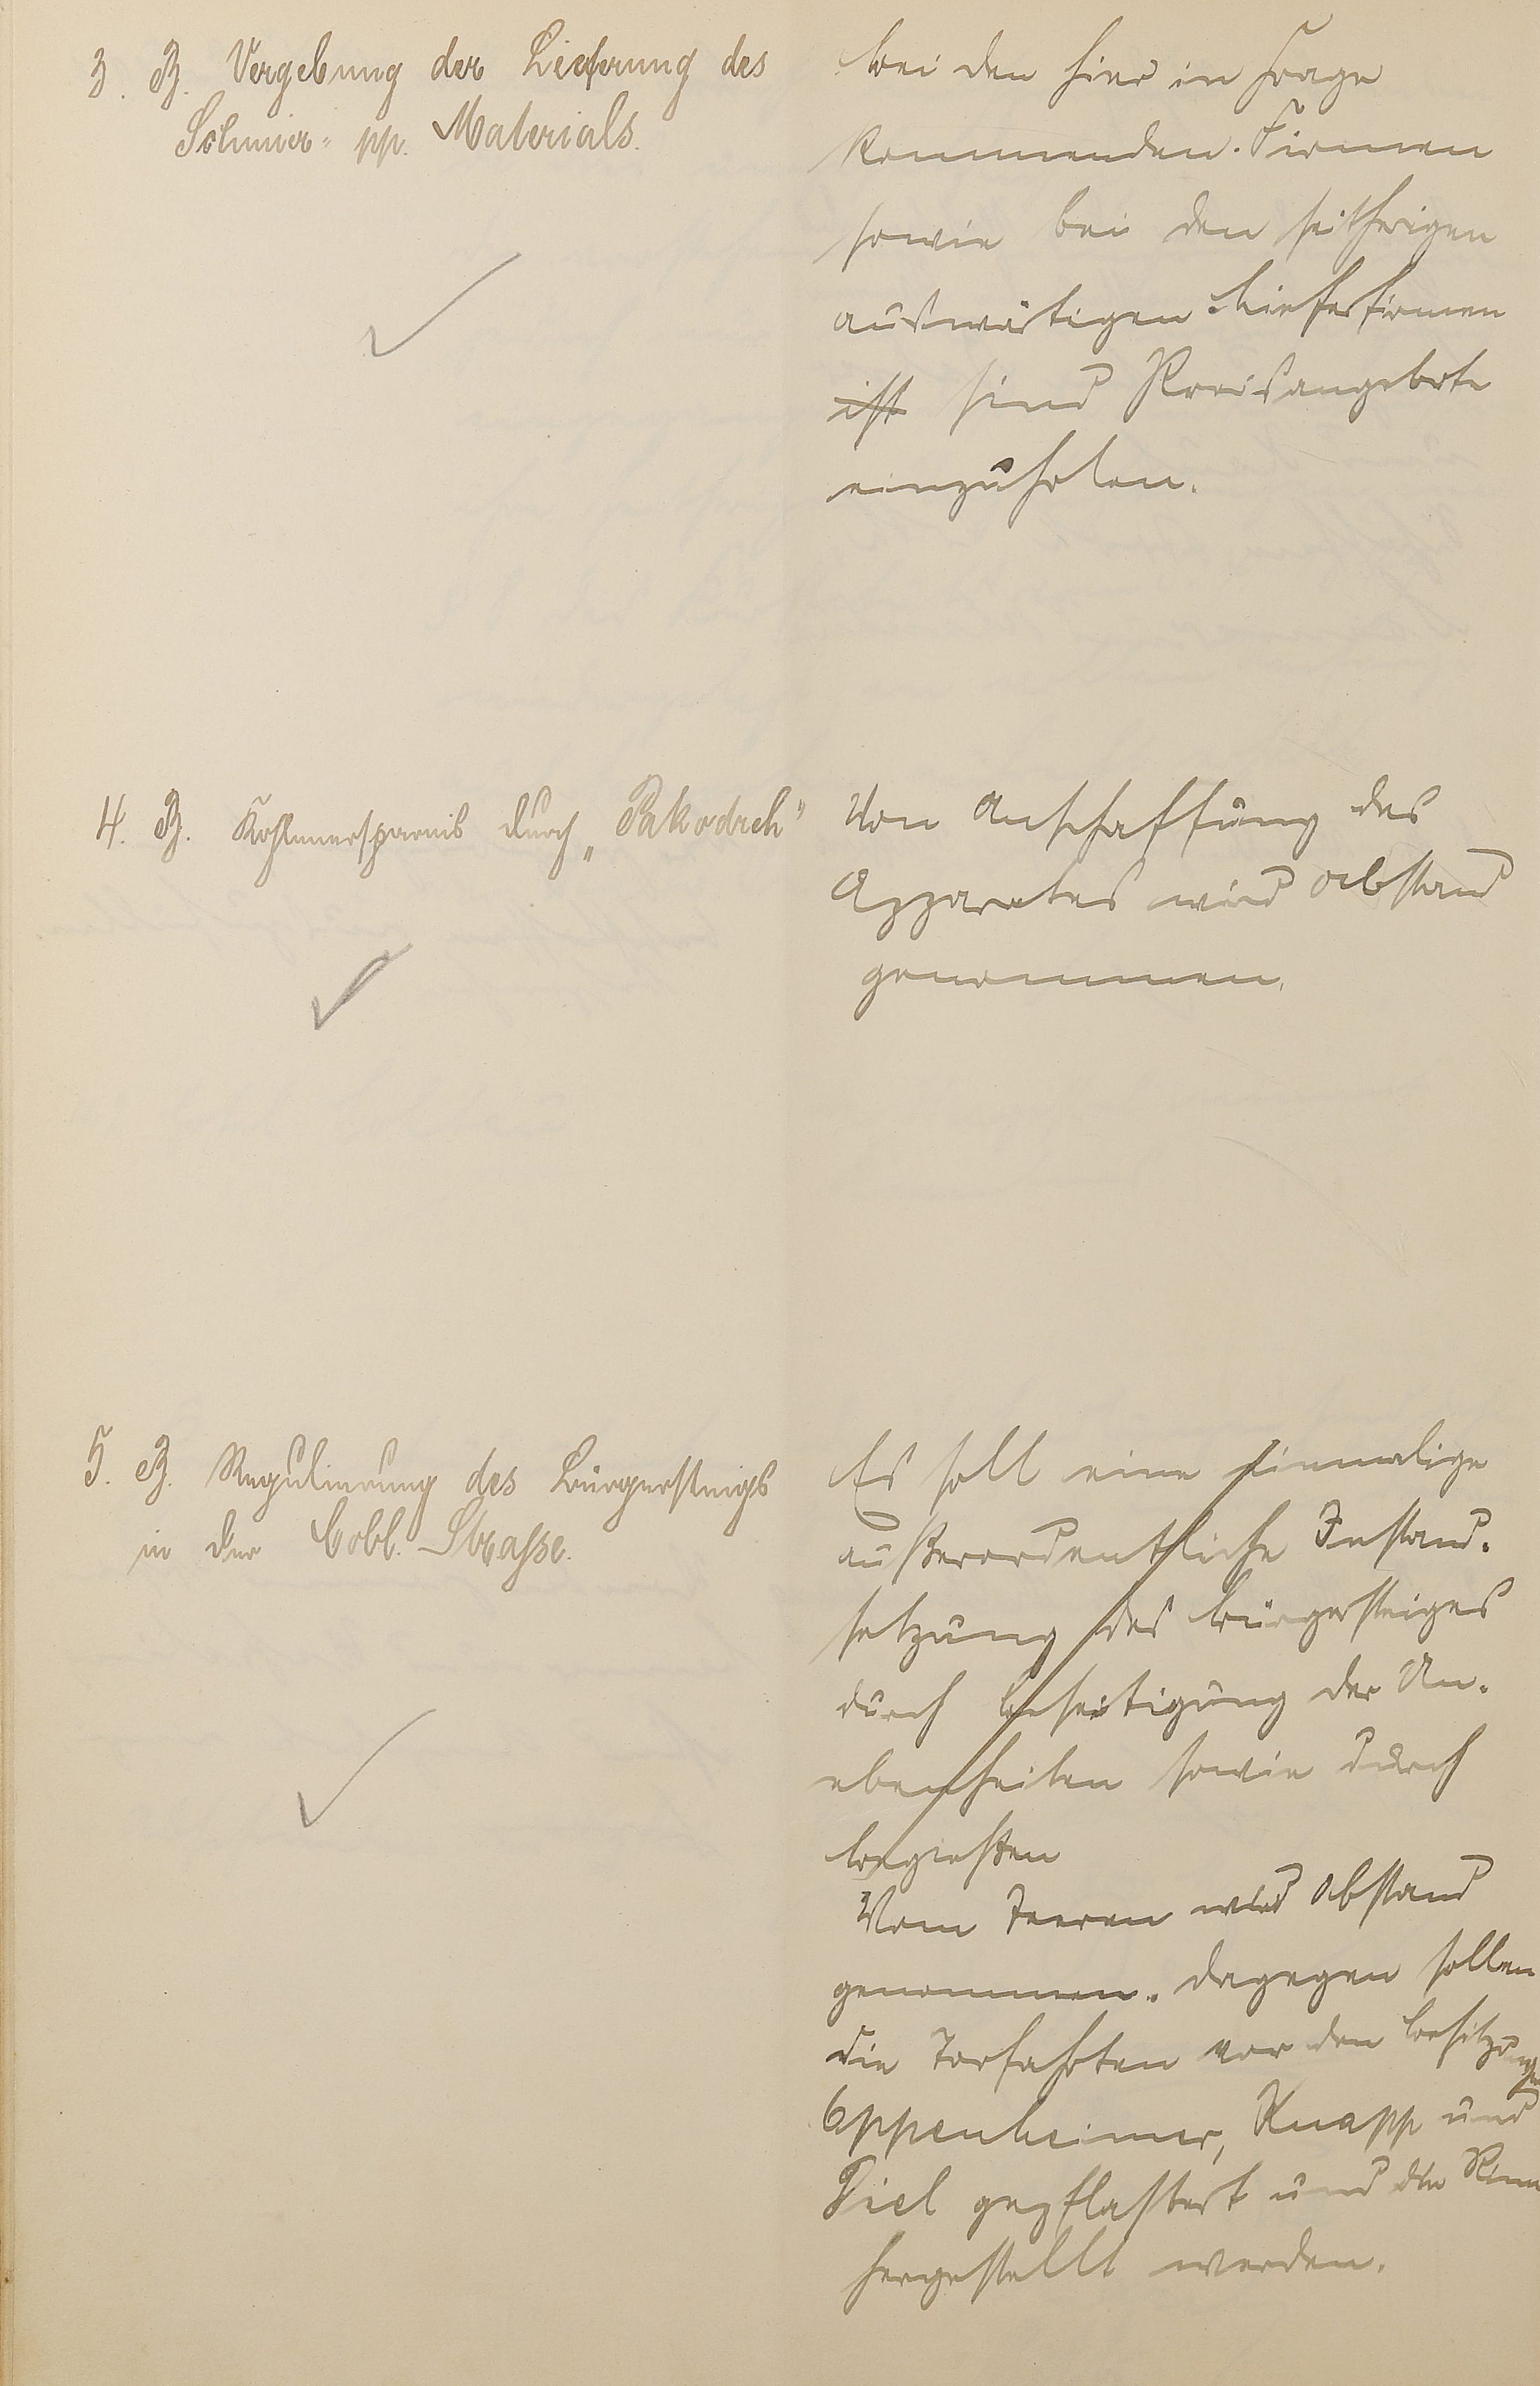 3. B. Vergebung der Lieferung des
Schmier- pp. Materials.
bei den hier in Frage
kommenden Firmen
sowie bei den seitherigen
auswärtigen Lieferfirmen
ist sind Preisangebote
einzuholen.
4. B. Kohlenersparnis durch „Pakodreh"
Von Anschaffung des
Apparates wird Abstand
genommen.
5. B. Regulierung des Bürgersteigs
in der Cobl. Strasse.
Es soll eine einmalige
außerordentliche Instand-
setzung des Bürgersteiges
durch Beseitigung der Un-
ebenheiten sowie durch
begießen
Vom Teeren wird Abstand
genommen. dagegen sollen
die Torfahrten vor den Besitzungen
Oppenheimer, Knapp und
Diel gepflastert und die
hergestellt werden.